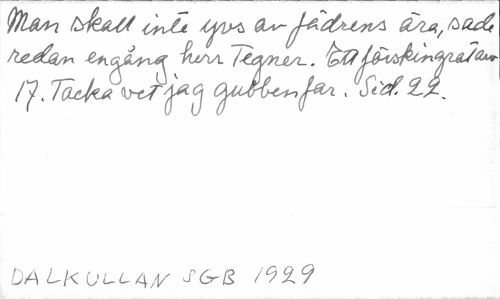 Man skall inte yvs av fädrens ära, sade
redan engång herr Tegner. Ett förskingrat arv
17. Tacka vet jag gubben far. Sid. 22.
DALKULLAN SGB 1929